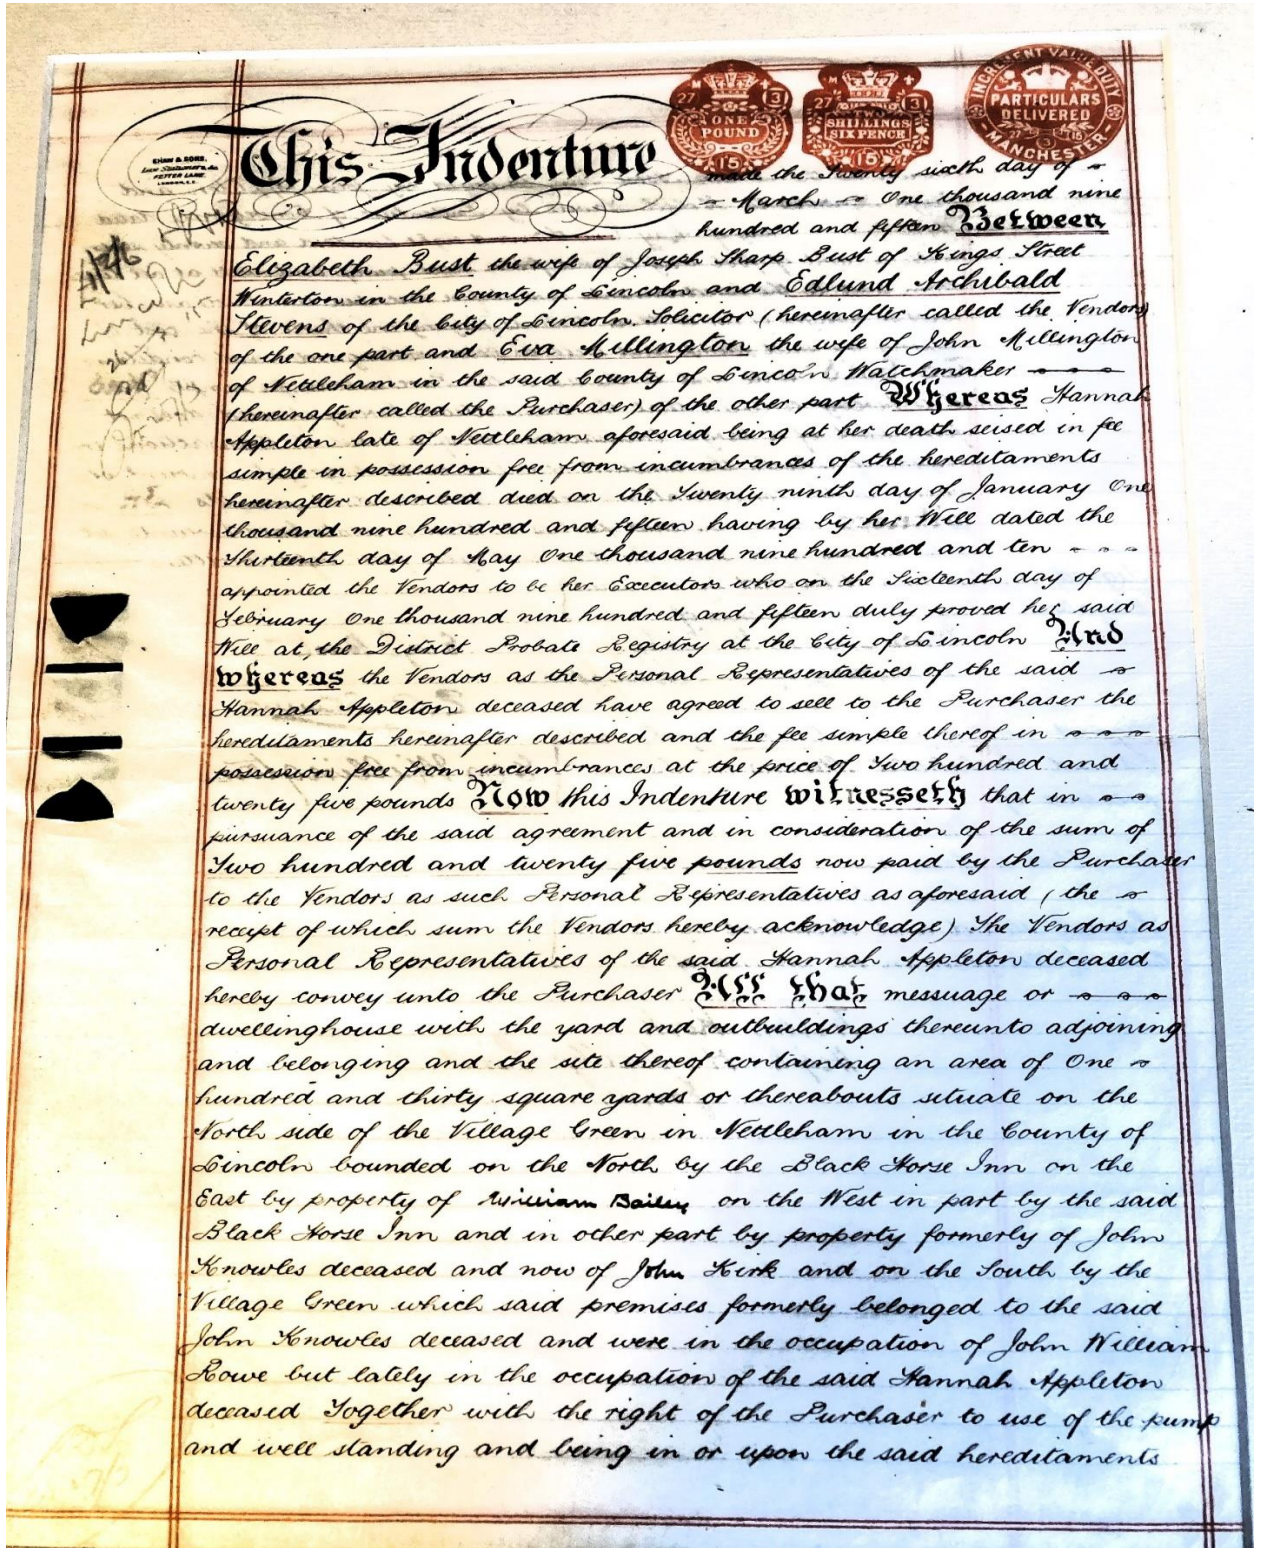 SHAW & SONS,
Law Stationers, &c.
FETTER LANE
LONDON, E.C.
27 3
ONE
POUND
15
27 3
SHILLINGS
SIXPENCE
15
INCREMENT VALUE DUTY
PARTICULARS
DELIVERED
27 3 15
MANCHESTER
This Indenture
made the Twenty sixth day of
March One thousand nine
hundred and fifteen Between
Elizabeth Bust the wife of Joseph Sharp Bust of Kings Street
Winterton in the County of Lincoln and Edlund Archibald
Stevens of the City of Lincoln Solicitor (hereinafter called the Vendors)
of the one part and Eva Millington the wife of John Millington
of Nettleham in the said County of Lincoln Watchmaker
(hereinafter called the Purchaser) of the other part Whereas Hannah
Appleton late of Nettleham aforesaid being at her death seised in fee
simple in possession free from incumbrances of the hereditaments
hereinafter described died on the Twenty ninth day of January One
thousand nine hundred and fifteen having by her Will dated the
Thirteenth day of May One thousand nine hundred and ten
appointed the Vendors to be her Executors who on the Sixteenth day of
February One thousand nine hundred and fifteen duly proved her said
Will at the District Probate Registry at the City of Lincoln And
whereas the Vendors as the Personal Representatives of the said
Hannah Appleton deceased have agreed to sell to the Purchaser the
hereditaments hereinafter described and the fee simple thereof in
possession free from incumbrances at the price of Two hundred and
twenty five pounds Now this Indenture witnesseth that in
pursuance of the said agreement and in consideration of the sum of
Two hundred and twenty five pounds now paid by the Purchaser
to the Vendors as such Personal Representatives as aforesaid (the
receipt of which sum the Vendors hereby acknowledge) The Vendors as
Personal Representatives of the said Hannah Appleton deceased
hereby convey unto the Purchaser All that messuage or
dwellinghouse with the yard and outbuildings thereunto adjoining
and belonging and the site thereof containing an area of One
hundred and thirty square yards or thereabouts situate on the
North side of the Village Green in Nettleham in the County of
Lincoln bounded on the North by the Black Horse Inn on the
East by property of William Bailey on the West in part by the said
Black Horse Inn and in other part by property formerly of John
Knowles deceased and now of John Kirk and on the South by the
Village Green which said premises formerly belonged to the said
John Knowles deceased and were in the occupation of John William
Rowe but lately in the occupation of the said Hannah Appleton
deceased Together with the right of the Purchaser to use of the pump
and well standing and being in or upon the said hereditaments